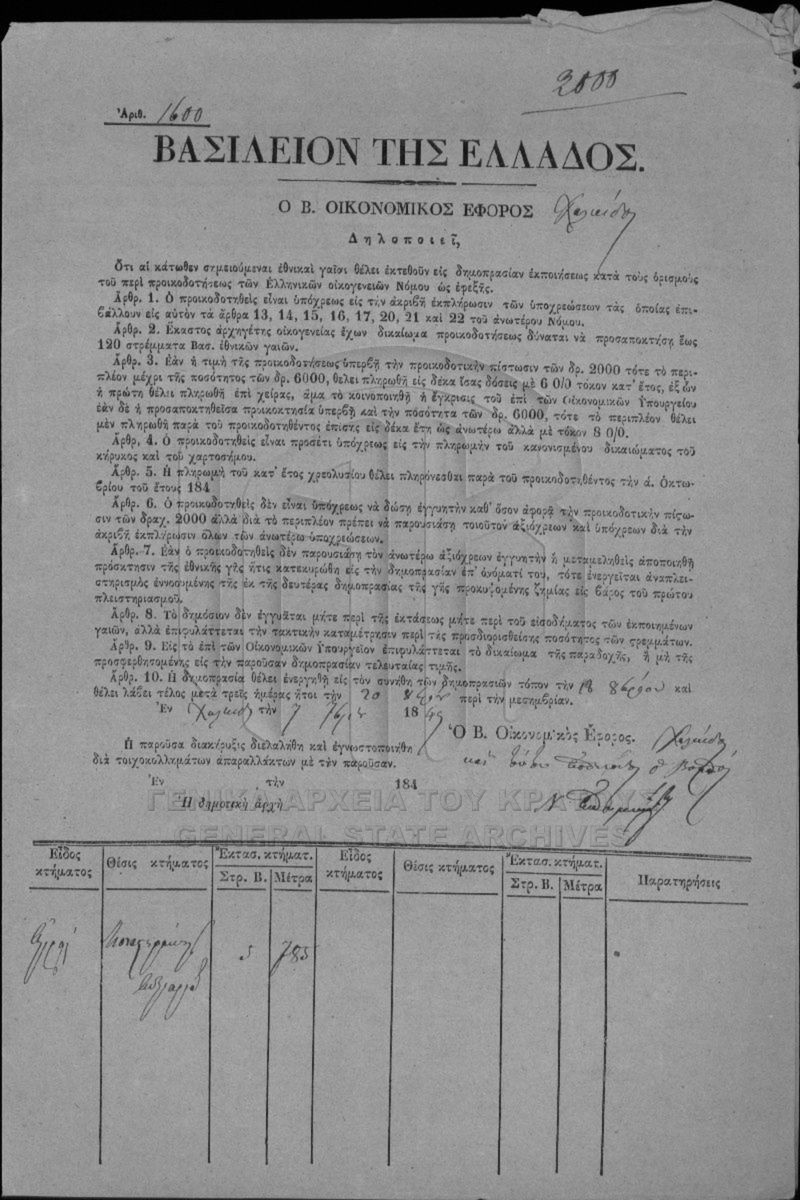 2000
Ἀριθ. 1600
ΒΑΣΙΛΕΙΟΝ ΤΗΣ ΕΛΛΑΔΟΣ.
Ο Β. ΟΙΚΟΝΟΜΙΚΟΣ ΕΦΟΡΟΣ Χαλκίδος
Δηλοποιεῖ,
Ὅτι αἱ κάτωθεν σημειούμεναι ἐθνικαὶ γαῖαι θέλει ἐκτεθοῦν εἰς δημοπρασίαν ἐκποιήσεως κατὰ τοὺς ὁρισμοὺς
τοῦ περὶ προικοδοτήσεως τῶν Ἑλληνικῶν οἰκογενειῶν Νόμου ὡς ἐφεξῆς.
Ἄρθρ. 1. Ὁ προικοδοτηθεὶς εἶναι ὑπόχρεως εἰς τὴν ἀκριβῆ ἐκπλήρωσιν τῶν ὑποχρεώσεων τὰς ὁποίας ἐπι-
βάλλουν εἰς αὐτὸν τὰ ἄρθρα 13, 14, 15, 16, 17, 20, 21 καὶ 22 τοῦ ἀνωτέρω Νόμου.
Ἄρθρ. 2. Ἕκαστος ἀρχηγέτης οἰκογενείας ἔχων δικαίωμα προικοδοτήσεως δύναται νὰ προσαποκτήσῃ ἕως
120 στρέμματα Βασ. ἐθνικῶν γαιῶν.
Ἄρθρ. 3. Ἐὰν ἡ τιμὴ τῆς προικοδοτήσεως ὑπερβῇ τὴν προικοδοτικὴν πίστωσιν τῶν δρ. 2000 τότε τὸ περι-
πλέον μέχρι τῆς ποσότητος τῶν δρ. 6000, θέλει πληρωθῆ εἰς δέκα ἴσας δόσεις μὲ 6 0/0 τόκον κατ' ἔτος, ἐξ ὧν
ἡ πρώτη θέλει πληρωθῆ ἐπὶ χεῖρας, ἅμα τὸ κοινοποιηθῇ ἡ ἔγκρισις τοῦ ἐπὶ τῶν Οἰκονομικῶν Ὑπουργείου
ἐὰν δὲ ἡ προσαποκτηθεῖσα προικοκτησία ὑπερβῇ καὶ τὴν πόσότητα τῶν δρ. 6000, τότε τὸ περιπλέον θέλει
μὲν πληρωθῆ παρὰ τοῦ προικοδοτηθέντος ἐπίσης εἰς δέκα ἔτη ὡς ἀνωτέρω ἀλλὰ μὲ τόκον 8 0/0.
Ἄρθρ, 4. Ὁ προικοδοτηθεὶς εἶναι προσέτι ὑπόχρεως εἰς τὴν πληρωμὴν τοῦ κανονισμένου δικαιώματος τοῦ
κήρυκος καὶ τοῦ χαρτοσήμου.
Ἄρθρ. 5. Ἡ πληρωμὴ τοῦ κατ' ἔτος χρεολυσίου θέλει πληρόνεσθαι παρὰ τοῦ προικοδοτηθέντος τὴν ά. Ὀκτω-
βρίου τοῦ ἔτους 184
Ἄρθρ. 6. Ὁ προικοδοτηθεὶς δὲν εἶναι ὑπόχρεως νὰ δώσῃ ἐγγυητὴν καθ' ὅσον ἀφορᾷ τὴν προικοδοτικὴν πίςω-
σιν τῶν δραχ. 2000 ἀλλὰ διὰ τὸ περιπλέον πρέπει νὰ παρουσιάσῃ τοιοῦτον ἀξιόχρεων καὶ ὑπόχρεων διὰ τὴν
ἀκριβῆ ἐκπλήρωσιν ὅλων τῶν ἀνωτέρω ὑποχρεώσεων.
Ἄρθρ. 7. Ἐὰν ὁ προικοδοτηθεὶς δὲν παρουσιάσῃ τὸν ἀνωτέρω ἀξιόχρεων ἐγγυητὴν ἢ μεταμεληθεὶς ἀποποιηθῇ
πρόσκτησιν τῆς ἐθνικῆς γῆς ἥτις κατεκυρώθη εἰς τὴν δημοπρασίαν ἐπ' ὀνόματί του, τότε ἐνεργεῖται ἀναπλει-
στηρισμὸς ἐννοουμένης τῆς ἐκ τῆς δευτέρας δημοπρασίας τῆς γῆς προκυπομένης ζημίας εἰς βάρος τοῦ πρώτου
πλειστηριασμοῦ.
Ἄρθρ. 8. Τὸ δημόσιον δὲν ἐγγυᾶται μήτε περὶ τῆς ἐκτάσεως μήτε περὶ τοῦ εἰσοδήματος τῶν ἐκποιημένων
γαιῶν, ἀλλὰ ἐπιφυλάττεται τὴν τακτικὴν καταμέτρησιν περὶ τῆς προσδιορισθείσης ποσότητος τῶν στρεμμάτων.
Ἄρθρ. 9. Εἰς τὸ ἐπὶ τῶν Οἰκονομικῶν Ὑπουργεῖον ἐπιφυλάττεται τὸ δικαίωμα τῆς παραδοχῆς, ἢ μὴ τῆς
προσφερθησομένης εἰς τὴν παροῦσαν δημοπρασίαν τελευταίας τιμῆς.
Ἄρθρ. 10. Ἡ δημοπρασία θέλει ἐνεργηθῆ εἰς τὸν συνήθη τῶν δημοπρασιῶν τόπον τὴν 18 8βρίου καὶ
θέλει λάβει τέλος μετὰ τρεῖς ἡμέρας ἤτοι τὴν 20 περὶ τὴν μεσημβρίαν.
Ἐν Χαλκίδι τὴν 7 18
Ὁ Β. Οἰκονομικὸς Ἔφορος. Χαλκίδος
καὶ
Ἡ παροῦσα διακήρυξις διελαλήθη καὶ ἐγνωστοποιήθη
διὰ τοιχοκολλημάτων ἀπαραλλάκτων μὲ τὴν παροῦσαν.
Ἐν τὴν 184
Ἡ δημοτικὴ ἀρχὴ
Ν.
ΓΕΝΙΚΑ ΑΡΧΕΙΑ ΤΟΥ ΚΡΑΤΟΥΣ
GENERAL STATE ARCHIVES
Εἶδος κτήματος Θέσις κτήματος Ἔκτασ. κτήματ. Στρ. Β. Μέτρα Εἶδος κτήματος Θέσις κτήματος Ἔκτασ. κτήματ. Στρ. Β. Μέτρα Παρατηρήσεις
ἀγροί 5 785